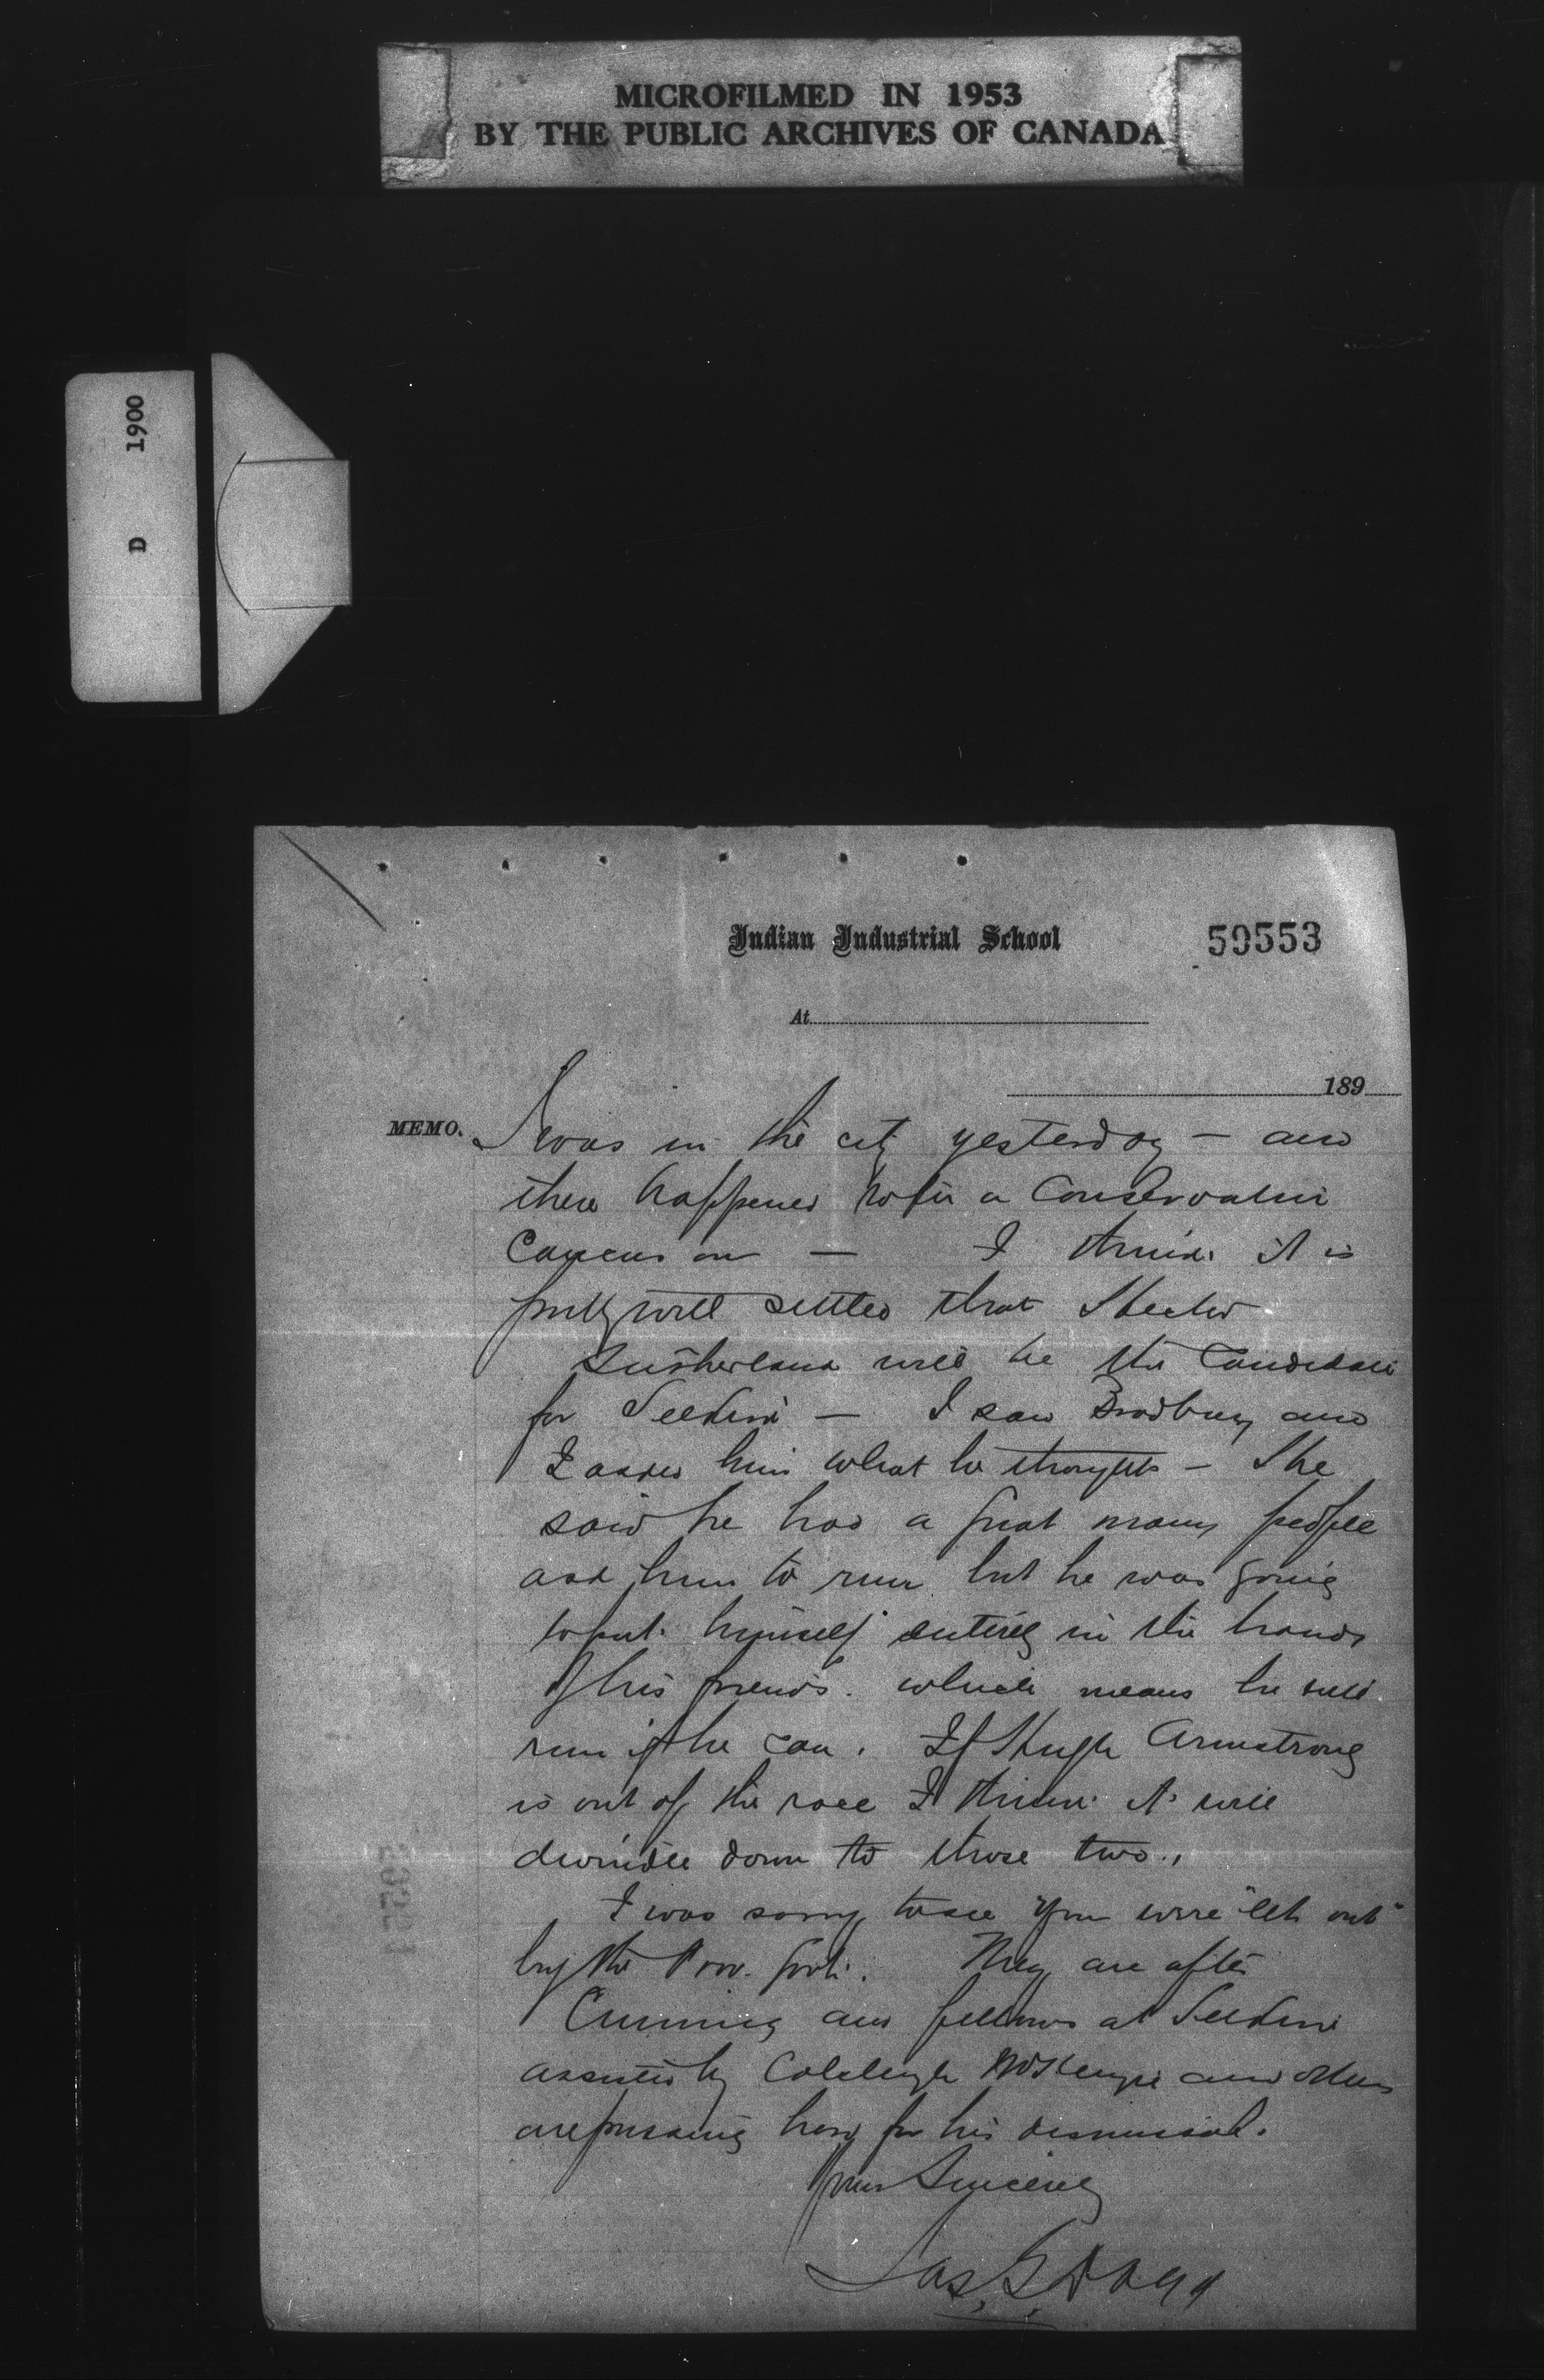 MICROFILMED IN 1953
BY THE PUBLIC ARCHIVES OF CANADA
D 1900
Indian Industrial School
59553
At
189
MEMO.
I was in the city yesterday — and
there happened to be a Conservative
Caucus on — I think it is
pretty well settled that Hector
Sutherland will be the Candidate
for Selkirk — I saw Bradbury and
I asked him what he thought — He
said he had a great many people
ask him to run but he was going
to put himself entirely in the hands
of his friends. which means he will
run if he can. If Hugh Armstrong
is out of the race I think it will
dwindle down to those two.
I was sorry to see you were "let out"
by the Prov. Govt. They are after
Cumming and fellows at Selkirk
assisted by Colcleugh McKenzie and others
are pressing hard for his dismissal.
Yours Sincerely
Jas. G. Dagg